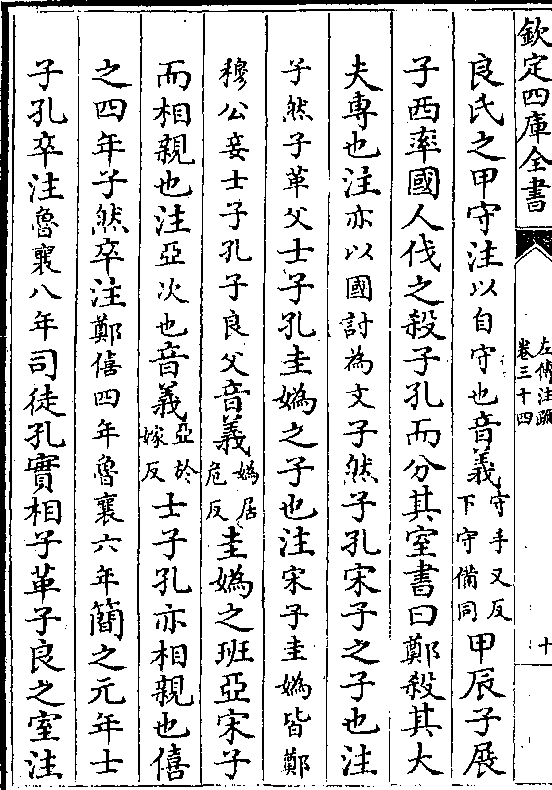 欽定四庫全書
左傳注疏
卷三十四
十
良氏之甲守注以自守也音義守手又反
下守備同甲辰子展
子西率國人伐之殺子孔而分其室書曰鄭殺其大
夫専也注亦以國討為文子然子孔宋子之子也注
子然子革父士子孔圭媯之子也注宋子圭媯皆鄭
穆公妾士子孔子良父音義媯居
危反圭媯之班亞宋子
而相親也注亞次也音義亞於
嫁反士子孔亦相親也僖
之四年子然卒注鄭僖四年魯襄六年簡之元年士
子孔卒注魯襄八年司徒孔實相子革子良之室注